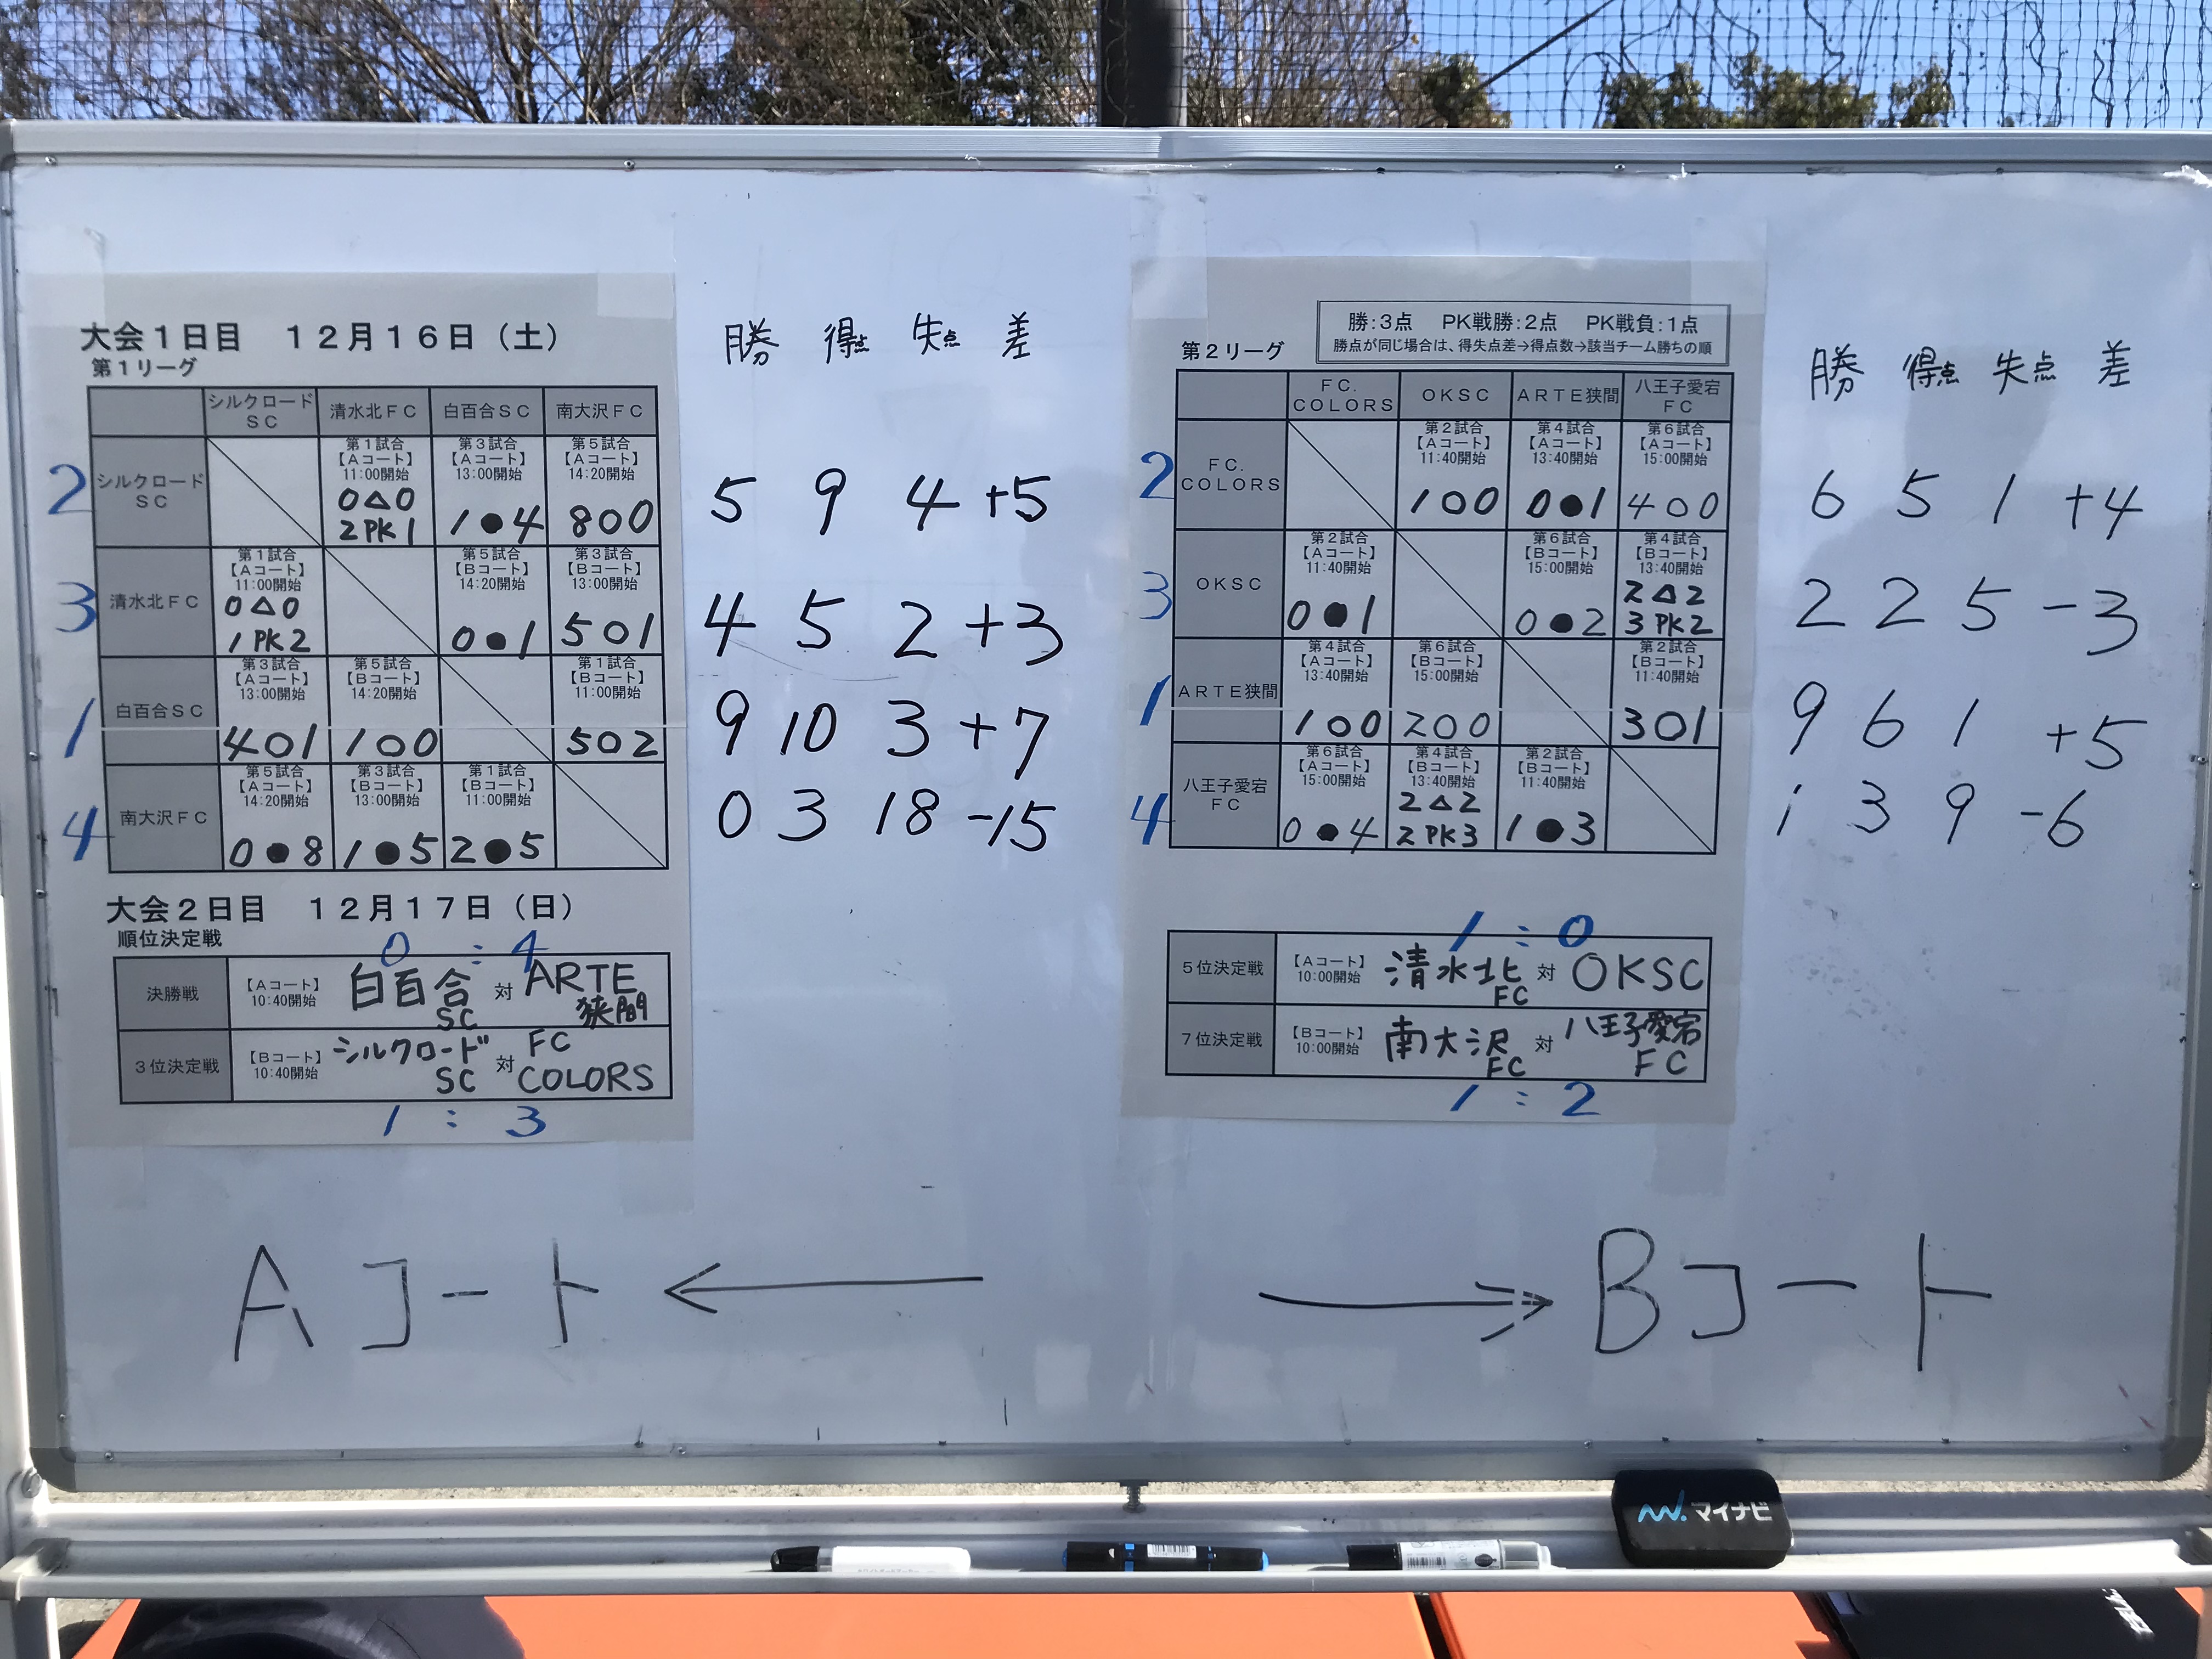 大会1日目　12月16日（土）
第1リーグ
勝 得点 失点 差
シルクロードSC 清水北FC 白百合SC 南大沢FC
2 シルクロードSC 第1試合【Aコート】11:00開始 0△0 2PK1 第3試合【Aコート】13:00開始 1●4 第5試合【Aコート】14:20開始 8○0 5 9 4 +5
3 清水北FC 第1試合【Aコート】11:00開始 0△0 1PK2 第5試合【Bコート】14:20開始 0●1 第3試合【Bコート】13:00開始 5○1 4 5 2 +3
1 白百合SC 第3試合【Aコート】13:00開始 4○1 第5試合【Bコート】14:20開始 1○0 第1試合【Bコート】11:00開始 5○2 9 10 3 +7
4 南大沢FC 第5試合【Aコート】14:20開始 0●8 第3試合【Bコート】13:00開始 1●5 第1試合【Bコート】11:00開始 2●5 0 3 18 -15
大会2日目　12月17日（日）
順位決定戦
0 : 4
決勝戦 【Aコート】10:40開始 白百合SC 対 ARTE狭間
3位決定戦 【Bコート】10:40開始 シルクロードSC 対 FC COLORS
1 : 3
勝:3点　PK戦勝:2点　PK戦負:1点
勝点が同じ場合は、得失点差→得点数→該当チーム勝ちの順
第2リーグ
勝 得点 失点 差
FC.COLORS OKSC ARTE狭間 八王子愛宕FC
2 FC.COLORS 第2試合【Aコート】11:40開始 1○0 第4試合【Aコート】13:40開始 0●1 第6試合【Aコート】15:00開始 4○0 6 5 1 +4
3 OKSC 第2試合【Aコート】11:40開始 0●1 第6試合【Bコート】15:00開始 0●2 第4試合【Bコート】13:40開始 2△2 3PK2 2 2 5 -3
1 ARTE狭間 第4試合【Aコート】13:40開始 1○0 第6試合【Bコート】15:00開始 2○0 第2試合【Bコート】11:40開始 3○1 9 6 1 +5
4 八王子愛宕FC 第6試合【Aコート】15:00開始 0●4 第4試合【Bコート】13:40開始 2△2 2PK3 第2試合【Bコート】11:40開始 1●3 1 3 9 -6
1 : 0
5位決定戦 【Aコート】10:00開始 清水北FC 対 OKSC
7位決定戦 【Bコート】10:00開始 南大沢FC 対 八王子愛宕FC
1 : 2
Aコート ← → Bコート
マイナビ